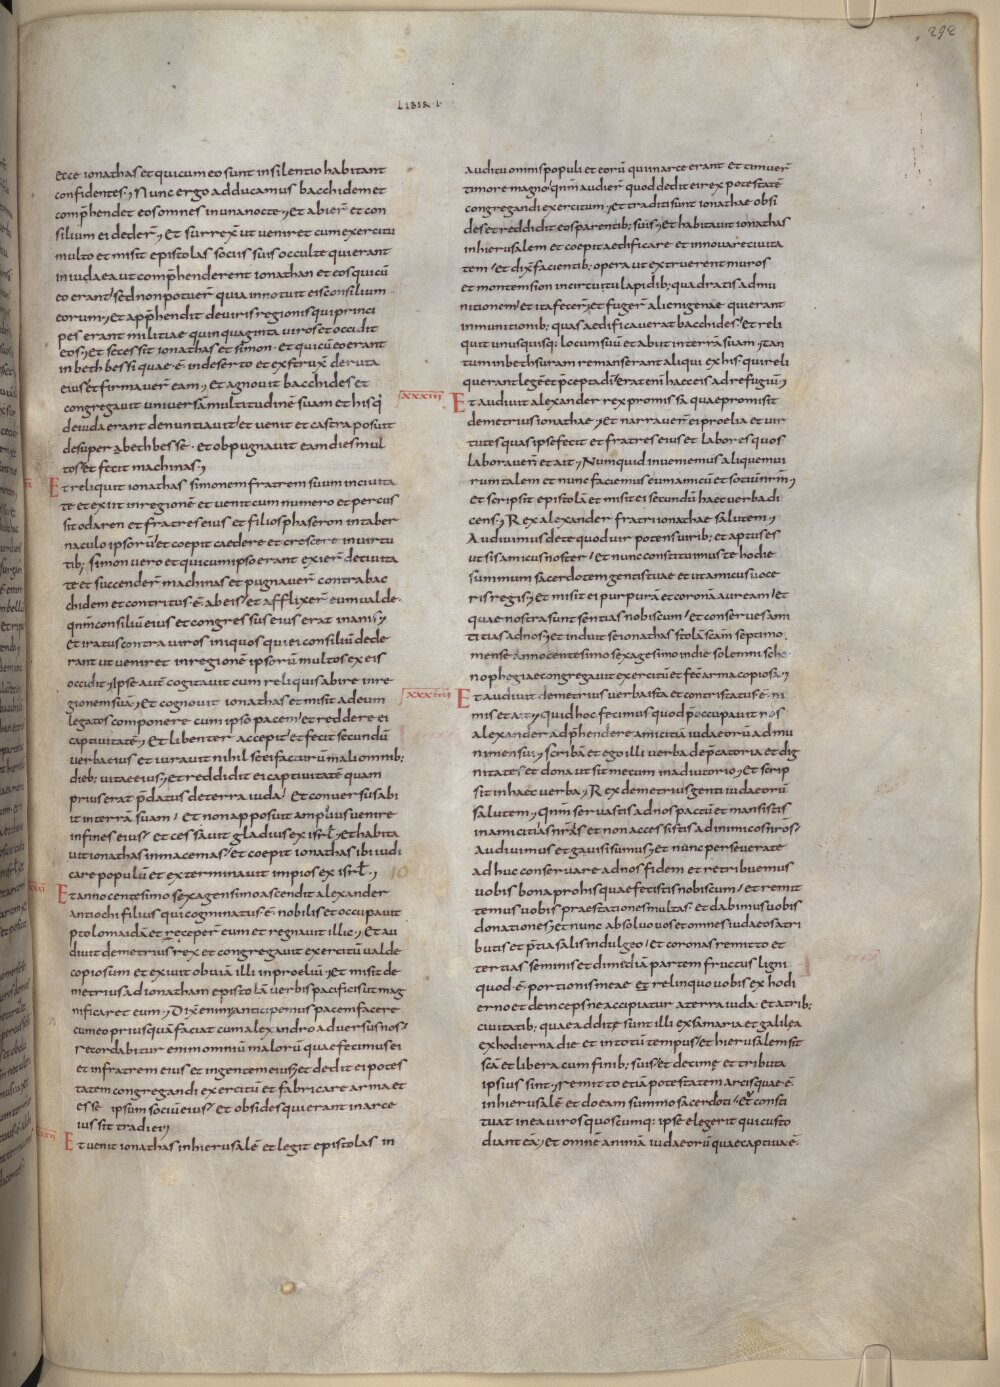 292
LIBER · I ·
ecce ionathas et qui cum eo sunt in silentio habitant
confidentes; Nunc ergo adducamus bacchidem et
comp̄hendet eos omnes in una nocte; Et abier̄ et con
silium ei deder̄; Et surrex̄ ut veniret cum exercitu
multo et misit epistolas sociis suis occulte qui erant
in iudaea ut comp̄henderent ionathan et eos qui cū
eo erant sed non potuer̄ quia innotuit eis consilium
eorum; Et app̄hendit de viris regionis qui princi
pes erant militiae quinquaginta viros et occidit
eos; Et secessit ionathas et simon · et qui cū eo erant
in bethbessi quae · ē · in deserto et exstrux̄ deruta
eius et firmaver̄ eam; Et agnovit bacchides et
congregavit universā multitudinē suam et his q̇
de iuda erant denuntiavit et venit et castra posuit
desuper abethbesse · et obpugnavit eam dies mul
tos et fecit machinas;
Et reliquit ionathas simonem fratrem suum in civita
te et exiit in regionē et venit cum numero et percus
sit odaren et fratres eius et filios phaseron in taber
naculo ipsorū et coepit caedere et crescere in virtu
tib; simon vero et qui cum ipso erant exier̄ de civita
te et succender̄ machinas et pugnaver̄ contra bac
chidem et contritus · ē · ab eis et afflixer̄ eum valde ·
qnm̄ consiliū eius et congressus eius erat inanis;
Et iratus contra viros iniquos qui ei consiliū dede
rant ut veniret in regionē ipsorū multos ex eis
occidit; Ipse autē cogitavit cum reliquis abire in re
gionem suā; Et cognovit ionathas et misit ad eum
legatos componere cum ipso pacem et reddere ei
captivitatē; Et libenter accepit et fecit secundū
verba eius et iuravit nihil se ei facturū mali omnib;
dieb; vitae eius; Et reddidit ei captivitatē quam
prius erat p̄datus de terra iuda; Et conversus abi
it in terrā suam; Et non apposuit amplius venire
in fines eius; et cessavit gladius ex isrl̄; Et habita
vit ionathas in macemas; et coepit ionathas ibi iudi
care populū et exterminavit impios ex isrl̄;
Et anno centesimo sexagensimo ascendit alexander
antiochi filius qui cogminatus · ē · nobilis et occupavit
ptolomaidā et receper̄ eum et regnavit illic; Et au
divit demetrius rex et congregavit exercitū valde
copiosum et exivit obviā illi in proeliū; Et misit de
metrius ad ionatham epistolā verbis pacificis ut mag
nificaret eum; Dix̄ enim anticipemus pacem facere
cum eo priusquā faciat cum alexandro adversus nos;
recordabitur enim omniū malorū quae fecimus ei
et in fratrem eius et in gentem eius; et dedit ei potes
tatem congregandi exercitū et fabricare arma et
esse ipsum sociū eius; Et obsides qui erant in arce
iussit tradi ei;
Et venit ionathas in hierusalē et legit epistolas in
auditu omnis populi et eorū qui in arce erant et timuer̄
timore magno qnm̄ audier̄ quod dedit ei rex potestatē
congregandi exercitum; Et traditi sunt ionathae obsi
des et reddidit eos parentib; suis; Et habitavit ionathas
in hierusalem et coepit aedificare et innovare civita
tem; Et dix̄ facientib; opera ut extruerent muros
et montem sion in circuitu lapidib; quadratis ad mu
nitionem et ita fecer̄; et fuger̄ alienigenae qui erant
in munitionib; quas aedificaverat bacchides; et reli
quit unusquisq; locum suū et abiit in terrā suam; tan
tum in bethsuram remanserant aliqui ex his qui reli
querant legē et p̄cepta di; Erat enī haec eis ad refugiū;
XXXIII
Et audivit alexander rex promissa quae promisit
demetrius ionathae; Et narraver̄ ei proelia et vir
tutes quas ipse fecit et fratres eius et labores quos
laboraver̄ et ait; Numquid inveniemus aliquem vi
rum talem et nunc faciemus eum amicū et sociū nr̄m;
Et scripsit epistolā et misit ei secundū haec verba di
cens; Rex alexander fratri ionathae salutem;
Audivimus de te quod vir potens virib; et aptus es
ut sis amicus noster; et nunc constituimus te hodie
summum sacerdotem gentis tuae et ut amicus voce
ris regis; Et misit ei purpurā et coronā auream; et
quae nostra sunt sentias nobiscum; et conserves ami
titias ad nos; et induit se ionathas stolā scam̄ septimo
mense anno centesimo sexagesimo in die solemni sche
nophegiae congregavit exercitū et fec̄ arma copiosa;
XXXIIII
Et audivit demetrius verba ista et contristatus · ē · ni
mis et ait; quid hoc fecimus quod p̄occupavit nos
alexander adp̄hendere amicitiā iudaeorū ad mu
nimen sui; scribā et ego illi verba dep̄catoria et dig
nitates et dona ut sit mecum in adiutorio; Et scrip
sit in haec verba; Rex demetrius genti iudaeorū
salutem; Qnm̄ servastis ad nos pactū et mansistis
in amicitiis nr̄is et non accessistis ad inimicos nr̄os;
Audivimus et gavisi sumus; et nunc perseverate
adhuc conservare ad nos fidem et retribuemus
vobis bona pro his quae fecistis nobiscum; et remit
temus vobis praestationes multas · et dabimus vobis
donationes; et nunc absolvo vos et omnes iudaeos a tri
butis et p̄tia salis indulgeo; et coronas remitto et
tertias seminis et dimediā partem fructus ligni
quod · ē · portionis meae et relinquo vobis ex hodi
erno et deinceps ne accipiatur a terra iuda · et a trib;
civitatib; quae additȩ sunt illi ex samaria et galilea
ex hodierna die et in totū tempus; et hierusalem sit
scā et libera cum finib; suis; et decimȩ et tributa
ipsius sint; remitto etiā potestatem arcis quae · ē
in hierusalē et do eam summo sacerdoti; et consti
tuat in ea viros quoscumq; ipse elegerit qui custo
diant eā; et omnē animā iudaeorū quae captiva ē ·